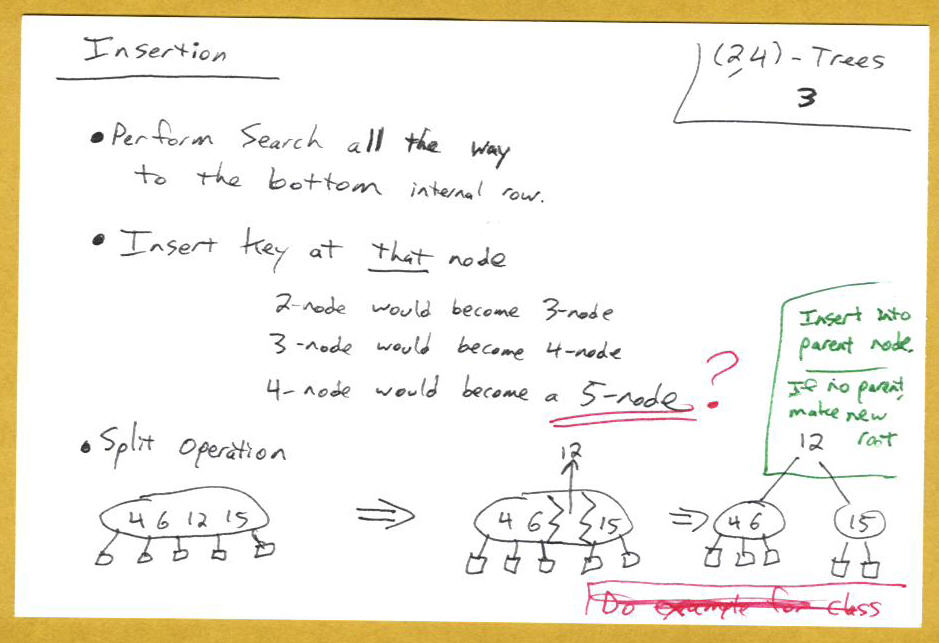 Insertion
(2,4) - Trees
3
• Perform Search all the way
to the bottom internal row.
• Insert key at that node
2-node would become 3-node
3-node would become 4-node
4-node would become a 5-node ?
Insert into
parent node.
If no parent,
make new
root
12
• Split Operation
12
4 6 12 15
⇒
4 6 15
⇒
4 6
15
Do example for class